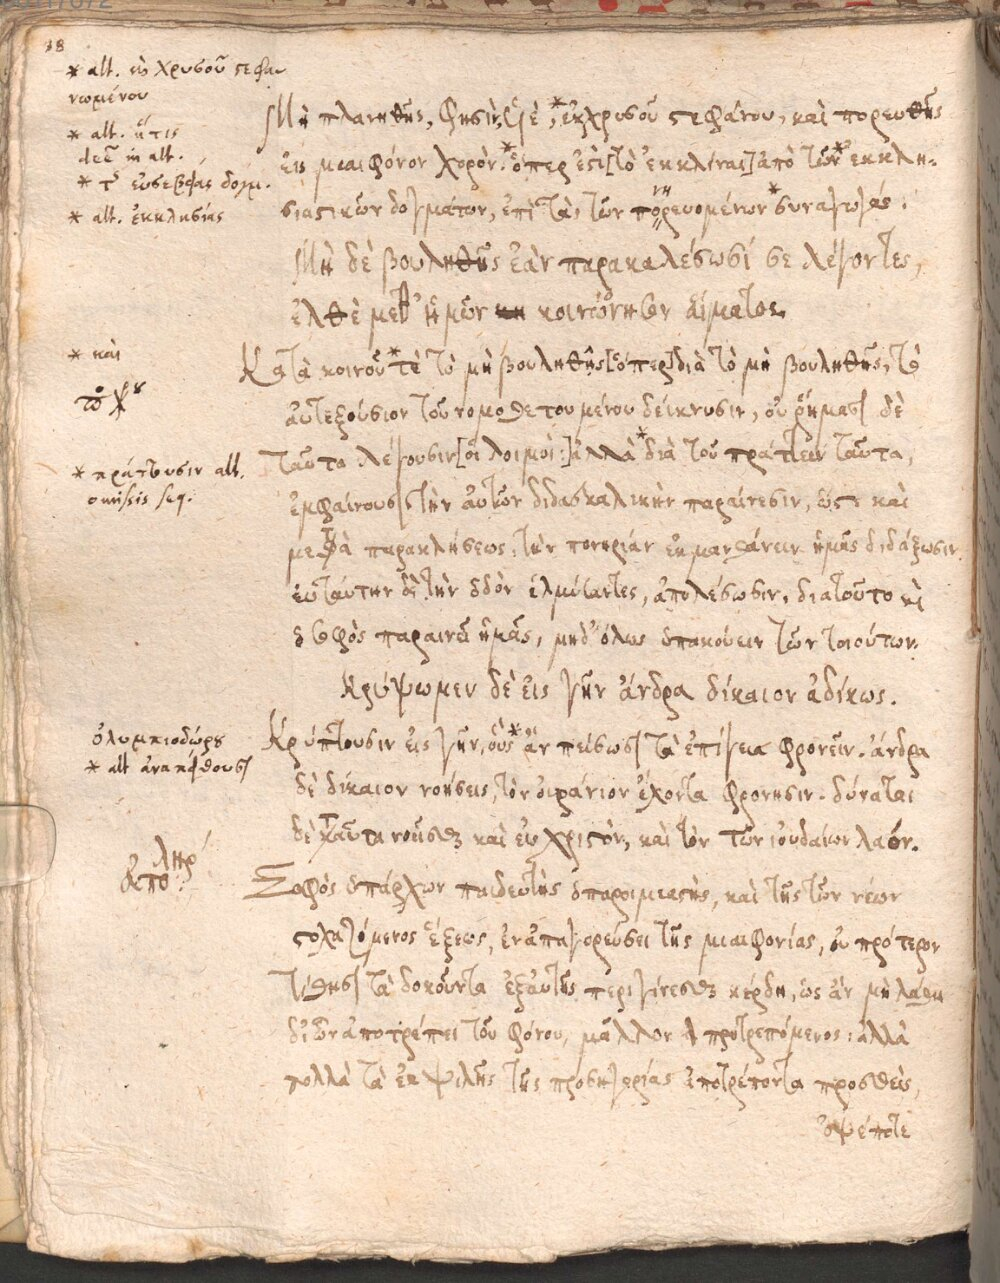 38
* alt. ἐκ χρυσοῦ στεφα-
νωμένου
* alt. ἥτις
deē in alt.
* τ εὐσεβείας δογμ.
* alt. ἐκκλησίας
Μὴ πλανηθῇς, φησίν, υἱὲ, * ἐκ χρυσοῦ στεφάνου, καὶ πορευθῇς
εἰς μιαιφόνον χορὸν. * ὅπερ ἐστὶ [τὸ ἐκκλῖναι] ἀπὸ τῶν * ἐκκλη-
σιαστικῶν δογμάτων, ἐπὶ τὰς τῶν πορευομένων * συναγωγάς.
Μὴ δὲ βουληθῇς ἐὰν παρακαλέσωσί σε λέγοντες,
ἐλθὲ μεθ' ἡμῶν κοινώνησον αἵματος.
* καὶ
Κατὰ κοινοῦ * τὲ τὸ μὴ βουληθῇς [ὅπερ] διὰ τὸ μὴ βουληθῇς, τὸ
τοῦ χυ
αὐτεξούσιον τοῦ νομοθετουμένου δείκνυσιν, οὐ ῥήμασι δὲ
* πράττουσιν alt.
omissis seq.
ταῦτα λέγουσιν [οἱ λοιμοί:] ἀλλὰ * διὰ τοῦ πράττειν ταῦτα,
ἐμφαίνουσι τὴν αὐτῶν διδασκαλικὴν παραίνεσιν, ὥστε καὶ
μετὰ παρακλήσεως, τὴν πονηρίαν ἐκμανθάνειν ἡμᾶς διδάξωσιν
εἰς ταύτην δὲ τὴν ὁδὸν ἑλκύσαντες, ἀπολέσωσιν, διατοῦτο καὶ
ὁ σοφὸς παραινεῖ ἡμᾶς, μηδ' ὅλως ὑπακούειν τῶν τοιούτων.
Κρύψωμεν δὲ εἰς γῆν ἄνδρα δίκαιον ἀδίκως.
ὀλυμπιοδώρου
Κρύπτουσιν εἰς γῆν, οὓς * ἂν πείσωσι τὰ ἐπίγεια φρονεῖν. ἄνδρα
δὲ δίκαιον νοήσεις, τὸν οὐράνιον ἔχοντα φρόνησιν. δύναται
δὲ ταῦτα νοεῖσθαι καὶ εἰς χριστὸν, καὶ τὸν τῶν ἰουδαίων λαόν.
Σοφὸς ὑπάρχων παιδευτὴς ὁ παροιμιαστὴς, καὶ τῆς τῶν νέων
στοχαζόμενος ἕξεως, ἐν ἀπαγορεύσει τῆς μιαιφονίας, οὐ πρότερον
τίθησι τὰ δοκοῦντα ἐξ αὐτῆς περιγίνεσθαι κέρδη, ὡς ἂν μὴ λάθῃ
δι' ὧν ἀποτρέπει τοῦ φόνου, μᾶλλον προτρεπόμενος: ἀλλὰ
πολλὰ τὰ ἐκ ψιλῆς τῆς προσηγορίας ἀποτρέποντα προσθεὶς,
ὀψέποτε